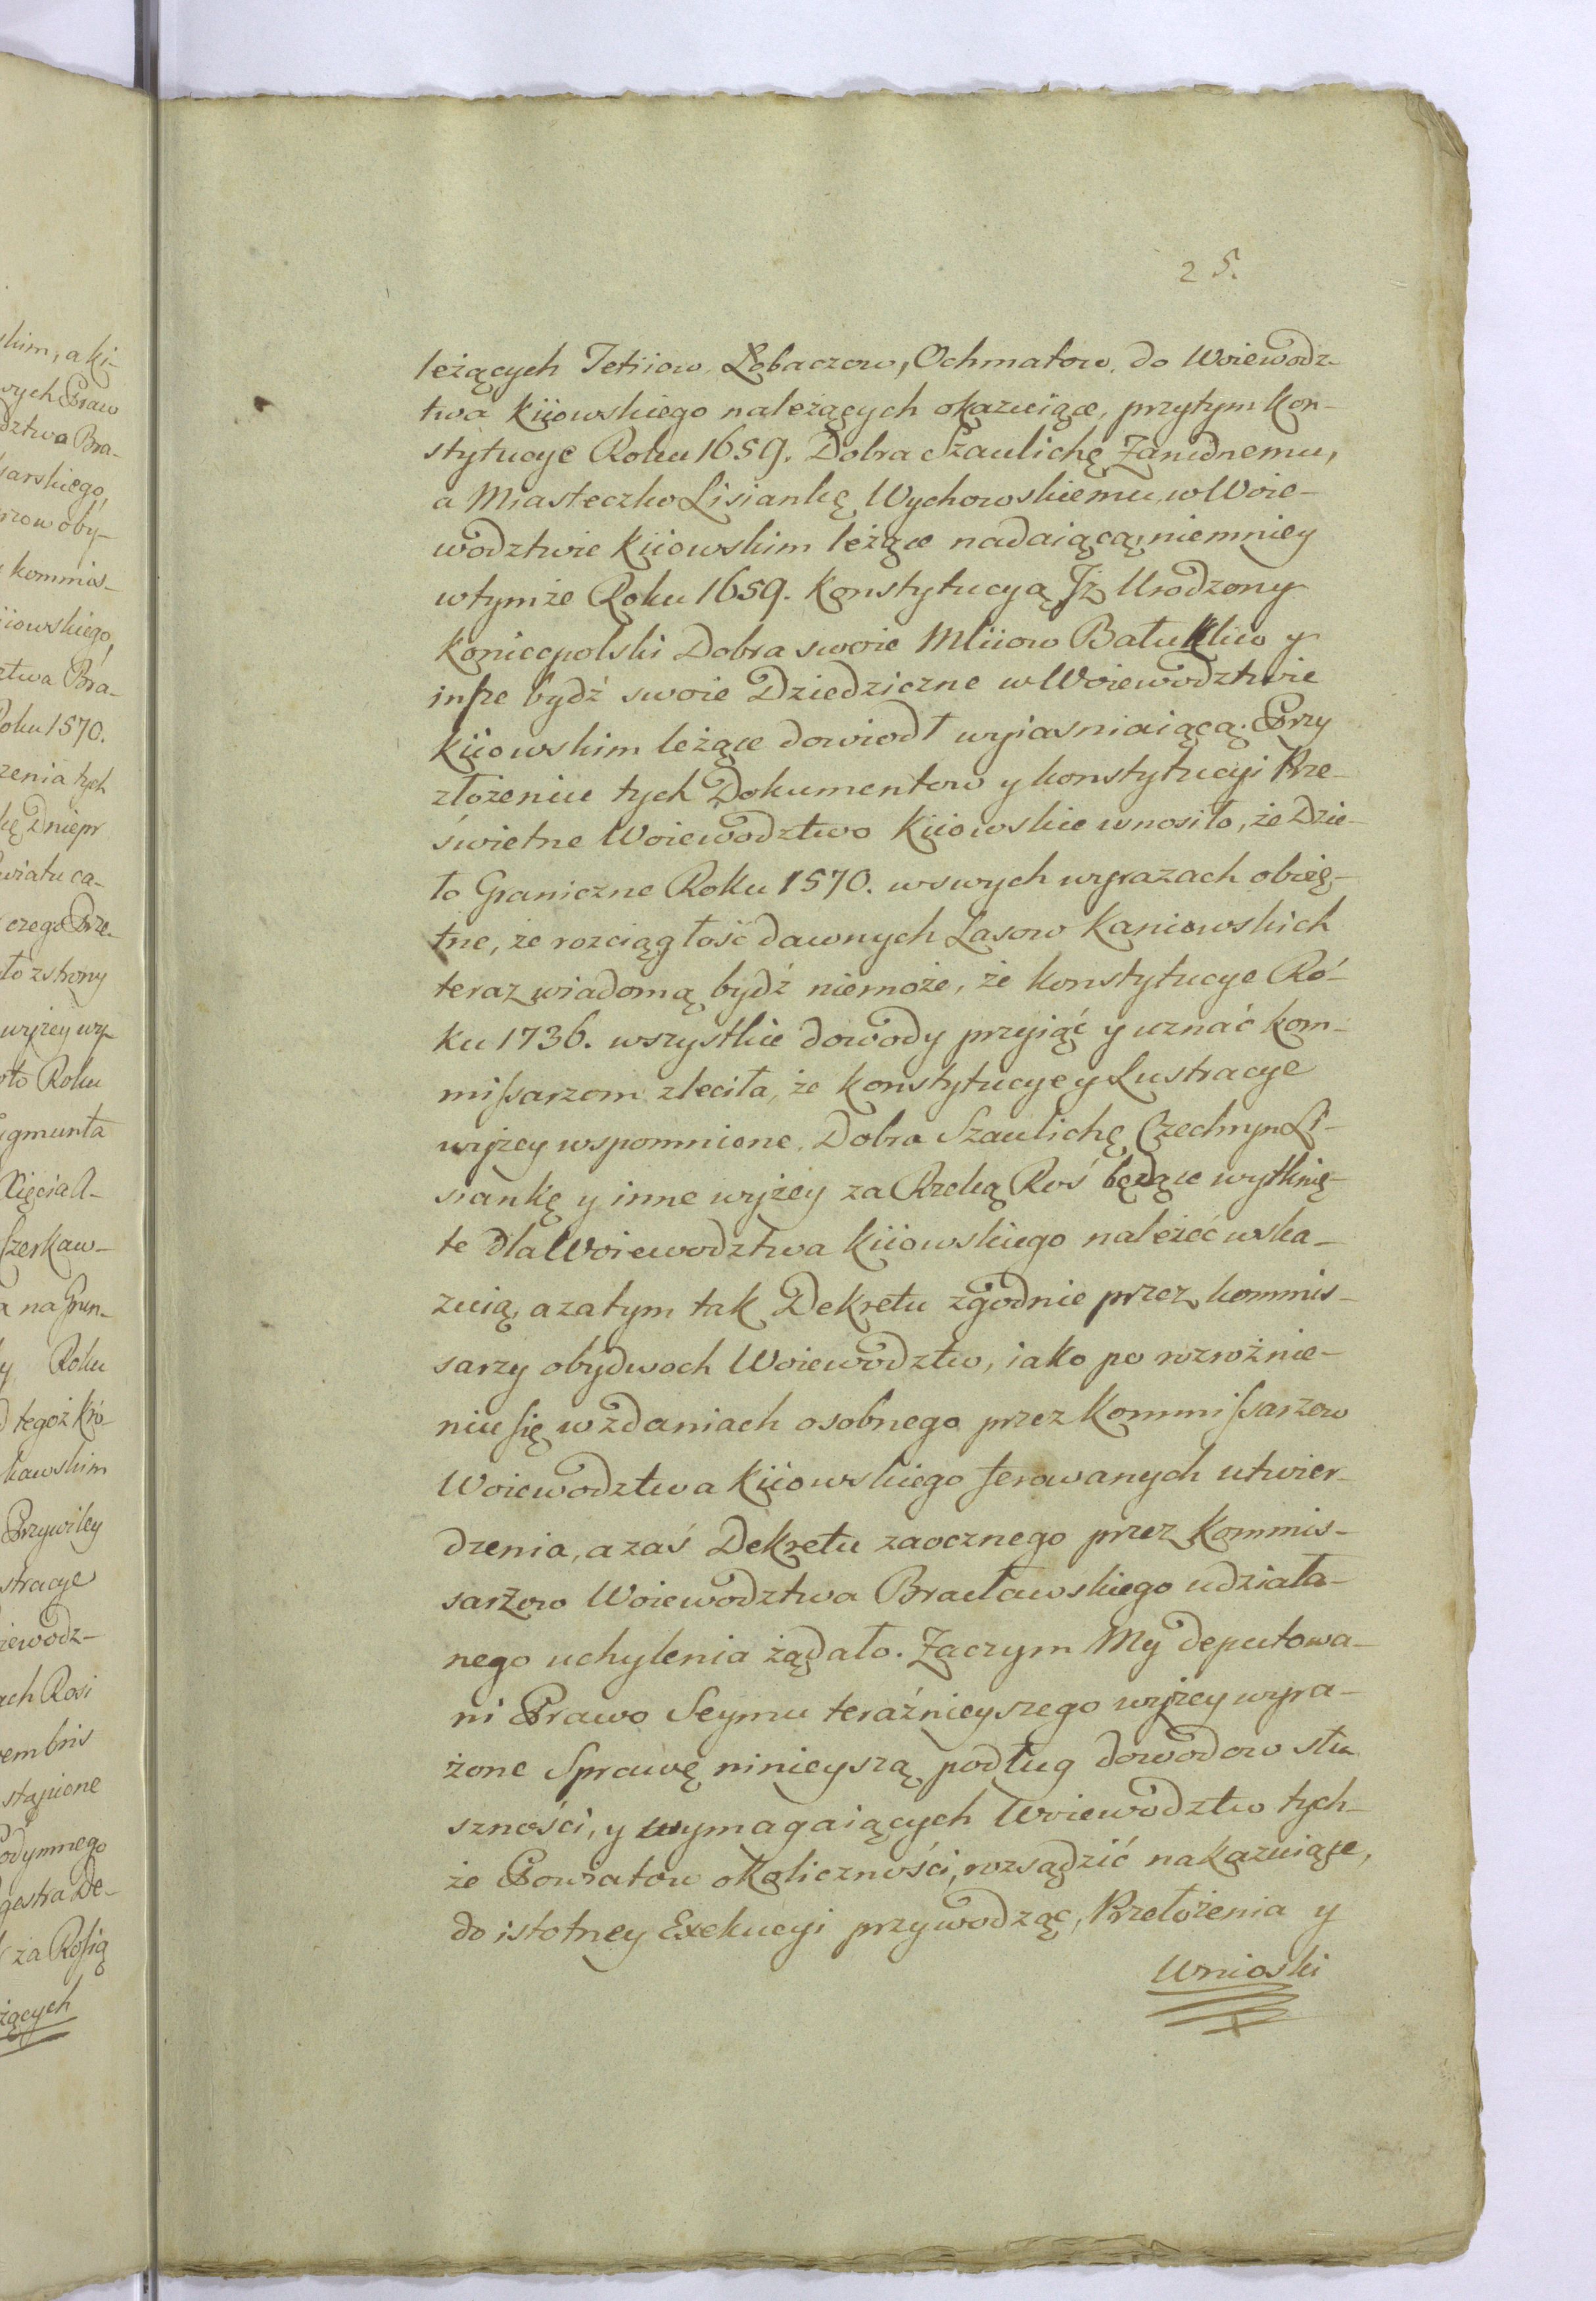 25.
leżących Tetiiow, Łobaczow, Ochmatow, do Woiewodz-
twa Kiiowskiego należących okazuiące, przytym Kon-
stytucye Roku 1659. Dobra Szaulichę Zarudnemu,
a Miasteczko Lisiankę Wychowskiemu, w Woie-
wodztwie Kiiowskim leżące nadaiącą, niemniey
w tymże Roku 1659. Konstytucyą Jż Urodzony
Koniecpolski Dobra swoie Mliiow Batuklii y
insze bydź swoie Dziedziczne w Woiewodztwie
Kiiowskim leżące dowiodł wyiasniaiącą. Przy
złożeniu tych Dokumentow y Konstytucyi Prze-
świetne Woiewodztwo Kiiowskie wnosiło, że Dzie-
ło Graniczne Roku 1570. w swych wyrazach obięt-
tne, że rozciągłość dawnych Lasow Kaniowskich
teraz wiadomą bydź niemoże, że Konstytucye Ro-
ku 1736. wszystkie dowody przyiąć y uznać Kom-
missarzom zleciła, że Konstytucye y Lustracye
wyżey wspomnione, Dobra Szaulichę Czechryn Li-
siankę y inne wyżey za Rzeką Roś będące wytknię-
te dla Woiewodztwa Kiiowskiego należeć wska-
zuią, a zatym tak Dekretu zgodnie przez Kommis-
sarzy obydwoch Woiewodztw, iako po rozrożnie-
niu się w zdaniach osobnego przez Kommissarzow
Woiewodztwa Kiiowskiego ferowanych utwier-
dzenia, a zaś Dekretu zaocznego przez Kommis-
sarzow Woiewodztwa Bracławskiego udziała-
nego uchylenia żądało. Zaczym My deputowa-
ni Prawo Seymu teraźnieyszego wyżey wyra-
żone Sprawę ninieyszą podług dowodow słu
szności, y wymagaiących Woiewodztw tych-
że Powiatow okoliczności, rozsądzić nakazuiące,
do istotney Exekucyi przywodząc, Przełożenia y
Wnioski
skim, a Ki-
wych Praw
dztwa Bra-
sarskiego,
rzow oby-
kommis-
iiowskiego,
ztwa Bra-
Roku 1570.
zenia tych
kę Dniepr
wiatu ca-
czego Prze-
ło z strony
wyżey wy-
oło Roku
ygmunta
Xięcia A-
Czerkaw-
na Grun-
y Roku
tegoż Kró-
kawskim
Przywiley
stracye
iewodz-
ach Rosi
embris
stąpione
odymnego
gestra De-
za Rosią
żących